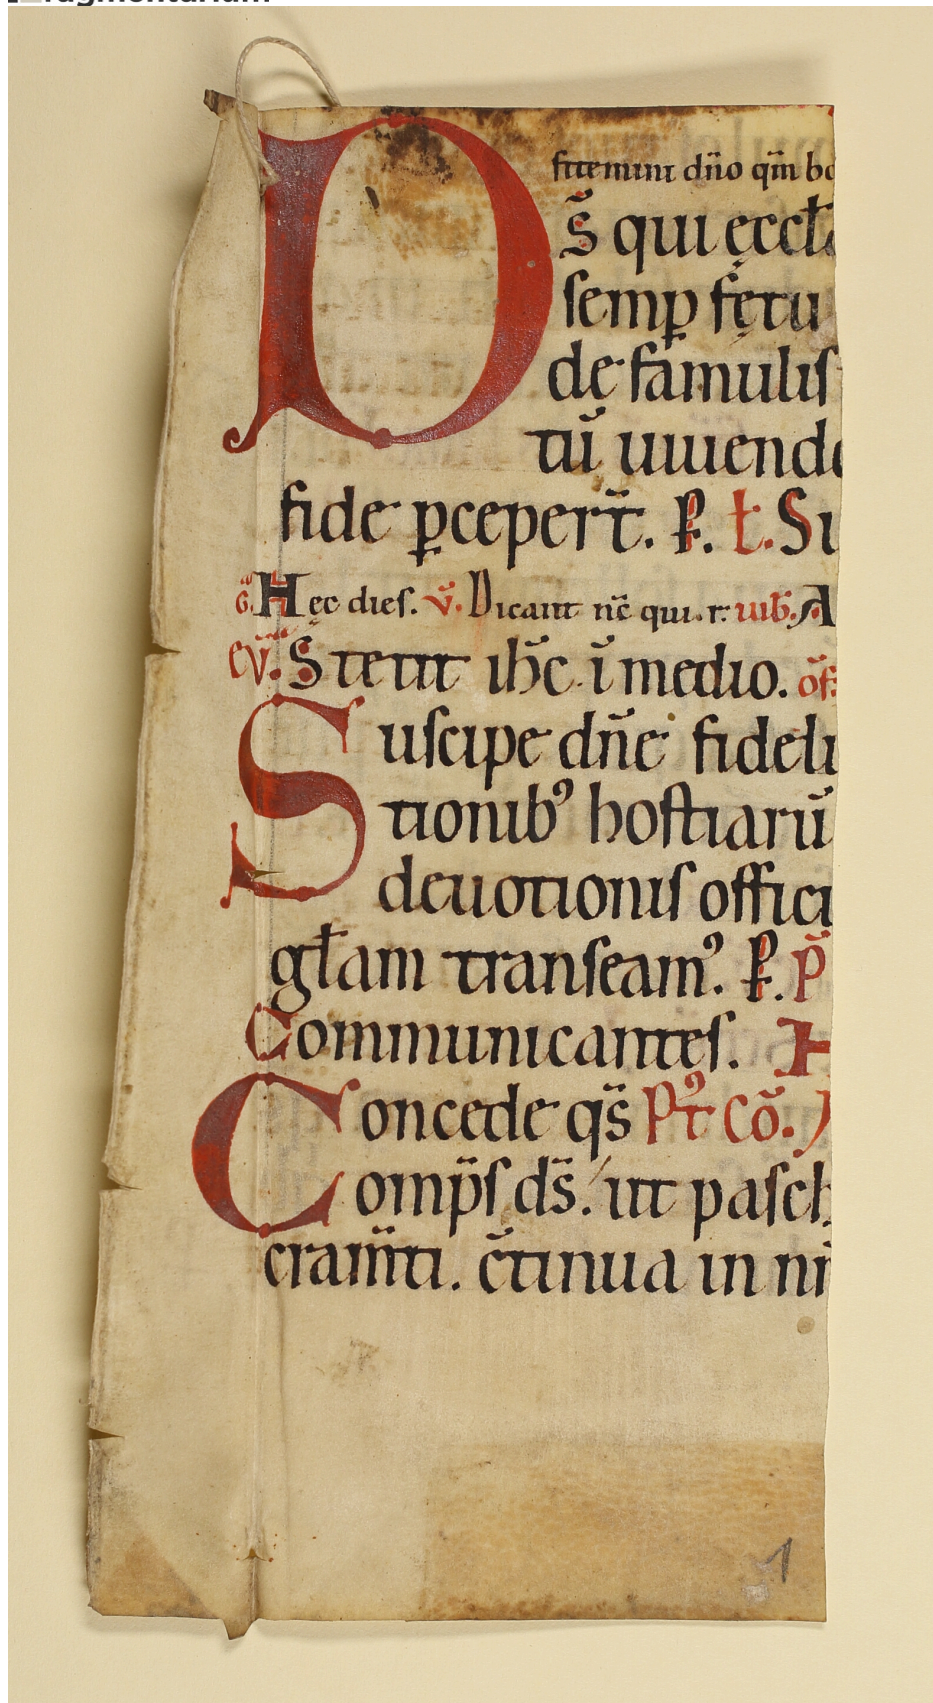 fitemini dño qm̃ bo
D s̃ qui ęccła
semp fętu
de famulis
tũ uiuendo
fide ꝑceperr̃t. P. ł. Si
G̃. Hęc dies. ṽ. Dicant nc̃ qui. r: uib̃. A
eṽ. Stetit ihc̃ ĩ medio. of̃.
Suscipe dñe fideli
tionibꝰ hostiarũ
deuotionis offici
głam transeamꝰ. P. P̃
Communicantes. H
Concede qs̃ Pꝰt cõ.
omp̃s ds̃. ut pasch
cram̃ti. c̃tinua in nr̃
1